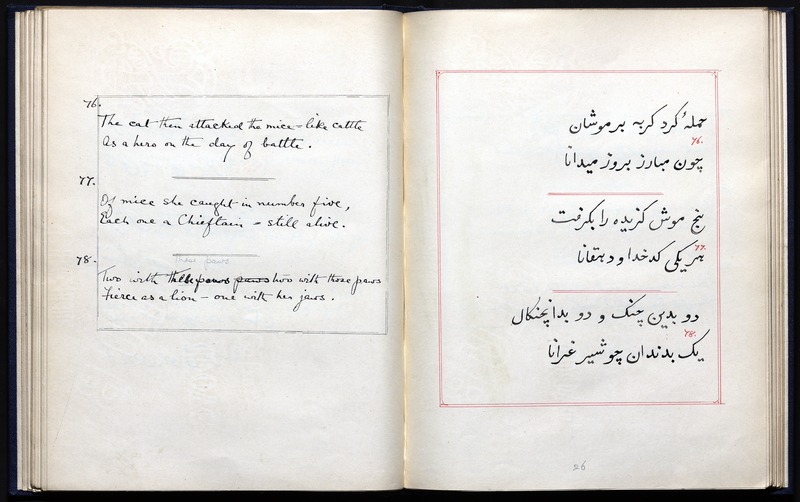 76.
The cat then attacked the mice - like cattle
As a hero on the day of battle.
77.
Of mice she caught in number five,
Each one a Chieftain - still alive.
78.
these paws
Two with paws two with those paws
Fierce as a lion - one with her jaws.
حملهٔ کرد کربه بر موشان
76.
چون مبارز بروز میدانا
پنج موش کزیده را بکرفت
77.
هر یکی کدخدا و دهقانا
دو بدین چنک و دو بدانچنکال
78.
یک بدندان چو شیر غرانا
26